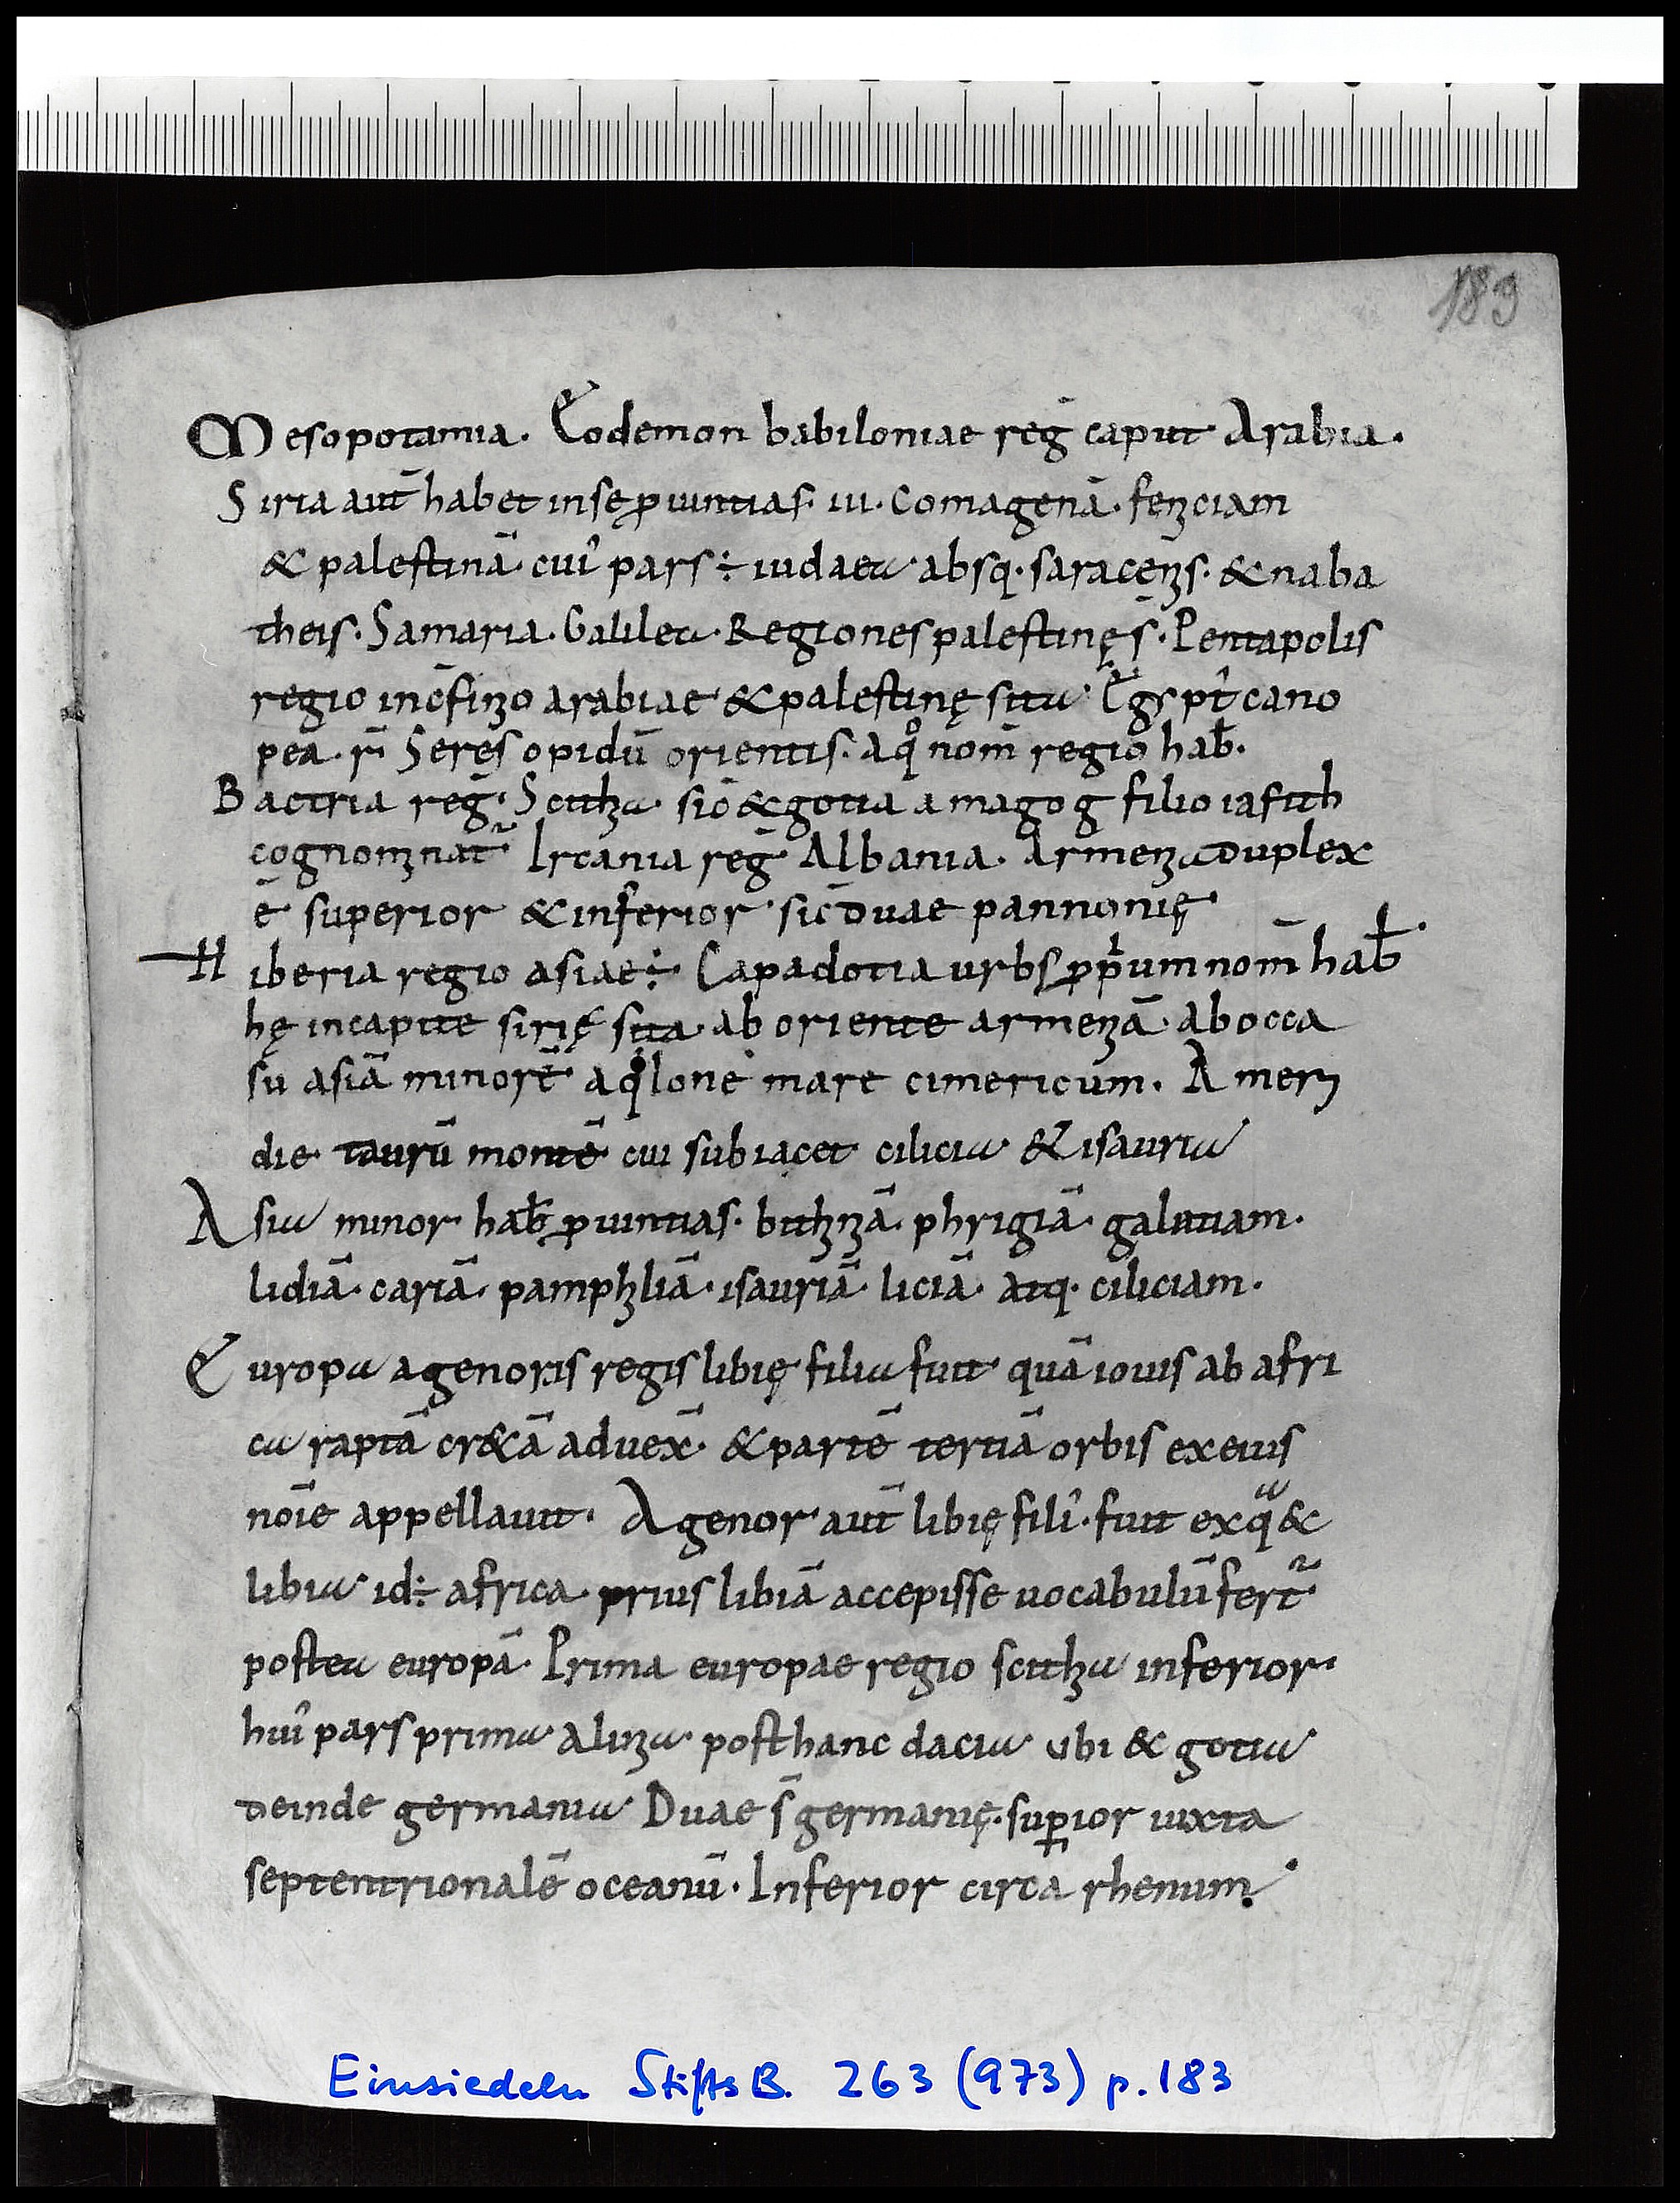 183
Mesopotamia. Eodemon babiloniae reg̅ caput Arabia.
Siria aut̅ habet in se ꝓuintias. iii. Comagena̅. feniciam
& palestina̅. cui᾽ pars ÷ iudaea absq. saracenis. & naba
theis. Samaria. Galilea. Regiones palestinę s̅. Pentapolis
regio in c̅finio arabiae & palestinę sita. Egypt᾽ cano
pea. r̅. Seres opidu̅ orientis. a qͦ nom̅ regio hab̅.
Bactria reg̅. Scithia sic̅ & gotia a magog filio iafith
cognominat᷑. Ircania reg̅. Albania. Armenia duplex
e̅ superior & inferior. sic̅ duae pannonię.
Hiberia regio asiae ÷ Capadotia urbs ꝓpⁱum nom̅ hab̅
hę in capite sirię sita. ab oriente armenia̅. ab occa
su asia̅ minore̅. aqⁱlone mare cimericum. A meri
die tauru̅ monte̅ cui subiacet cilicia & isauria
Asia minor hab̅ ꝓuintias. bithinia̅. phrigia̅. galatiam.
lidia̅. caria̅. pamphilia̅. isauria̅. licia̅. atq. ciliciam.
Europa agenoris regis libię filia fuit qua̅ iouis ab afri
ca rapta̅ cr&a̅ aduex̅. & parte̅ tertia̅ orbis ex eius
noi̅e appellauit. Agenor aut̅ libię fili᾽. fuit ex qᵃ &
libia id ÷ africa. prius libia̅ accepisse uocabulu̅ fert᷑
postea europa̅. Prima europae regio scithia inferior.
hui᾽ pars prima alinia post hanc dacia ubi & gotia
deinde germania Duae s̅ germanię. suꝑior iuxta
septentrionale̅ oceanu̅. Inferior circa rhenum.
Einsiedeln StiftsB. 263 (973) p. 183